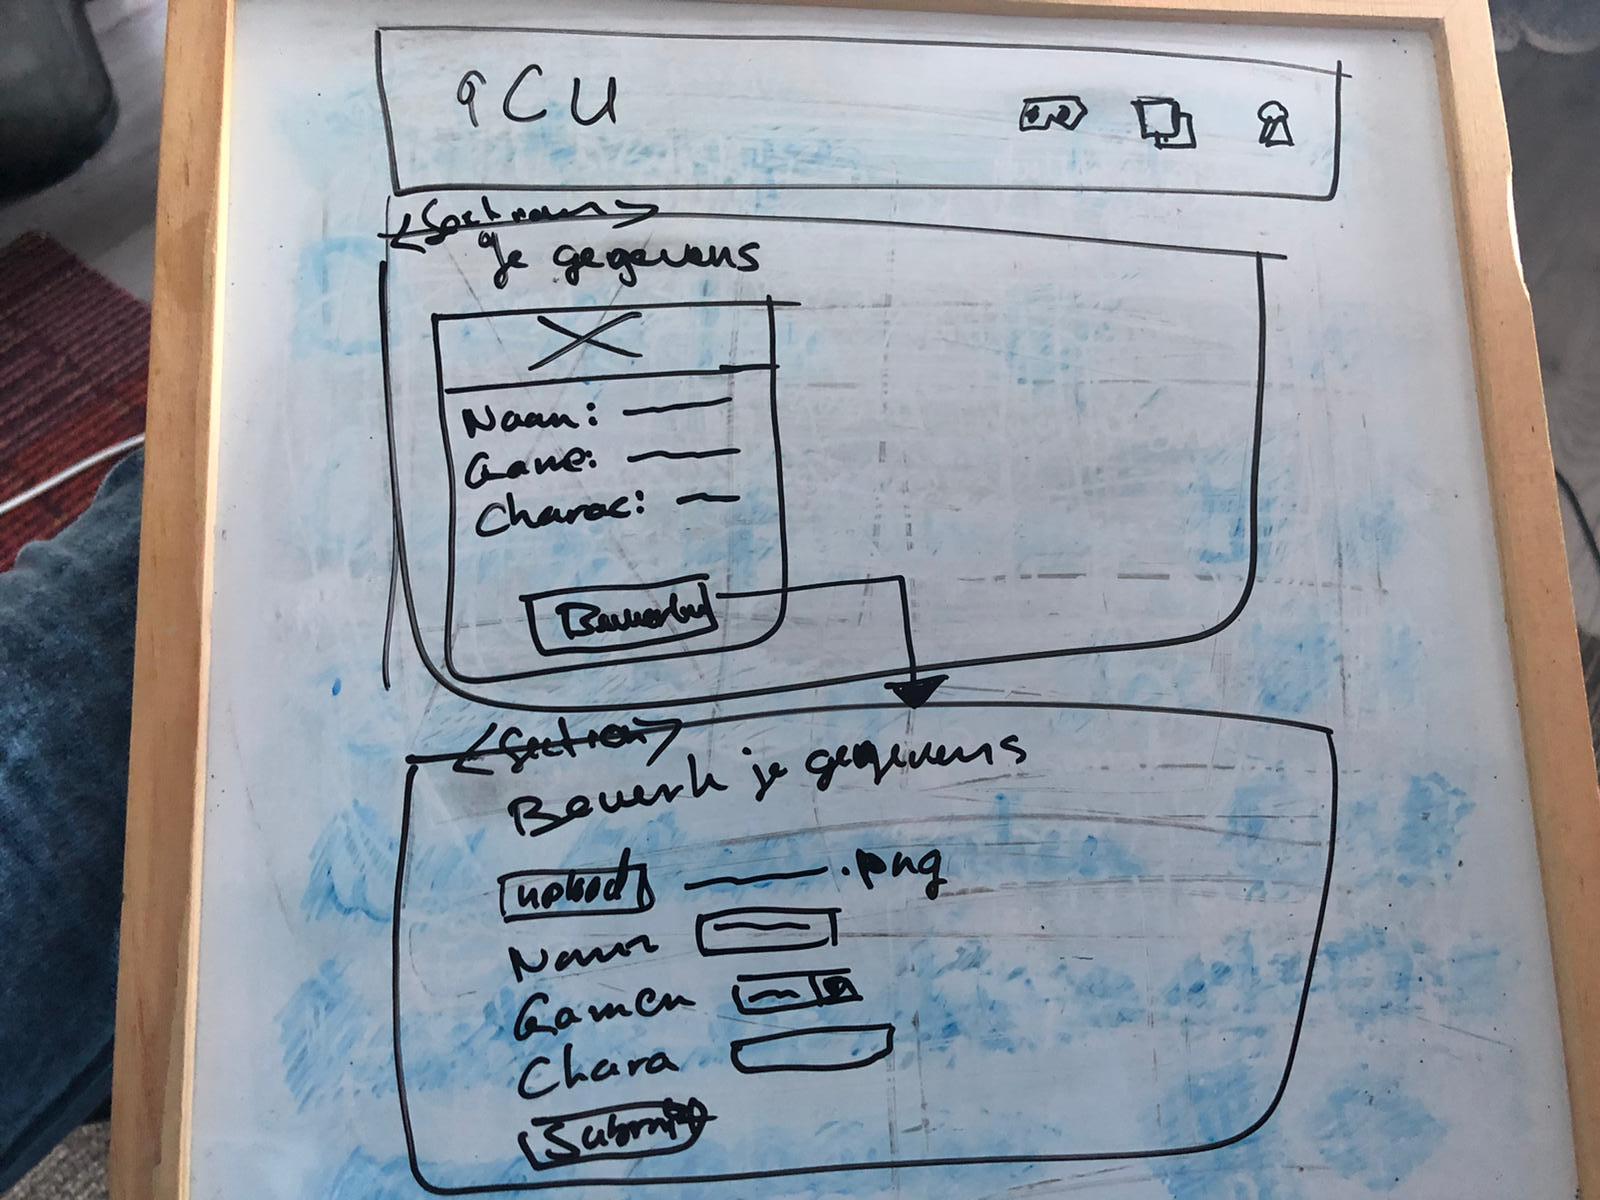 CU
<Section>
Je gegevens
Naam:
Game:
Charac:
Bewerken
<Section>
Bewerk je gegevens
upload .png
Naam
Gamen
Chara
Submit